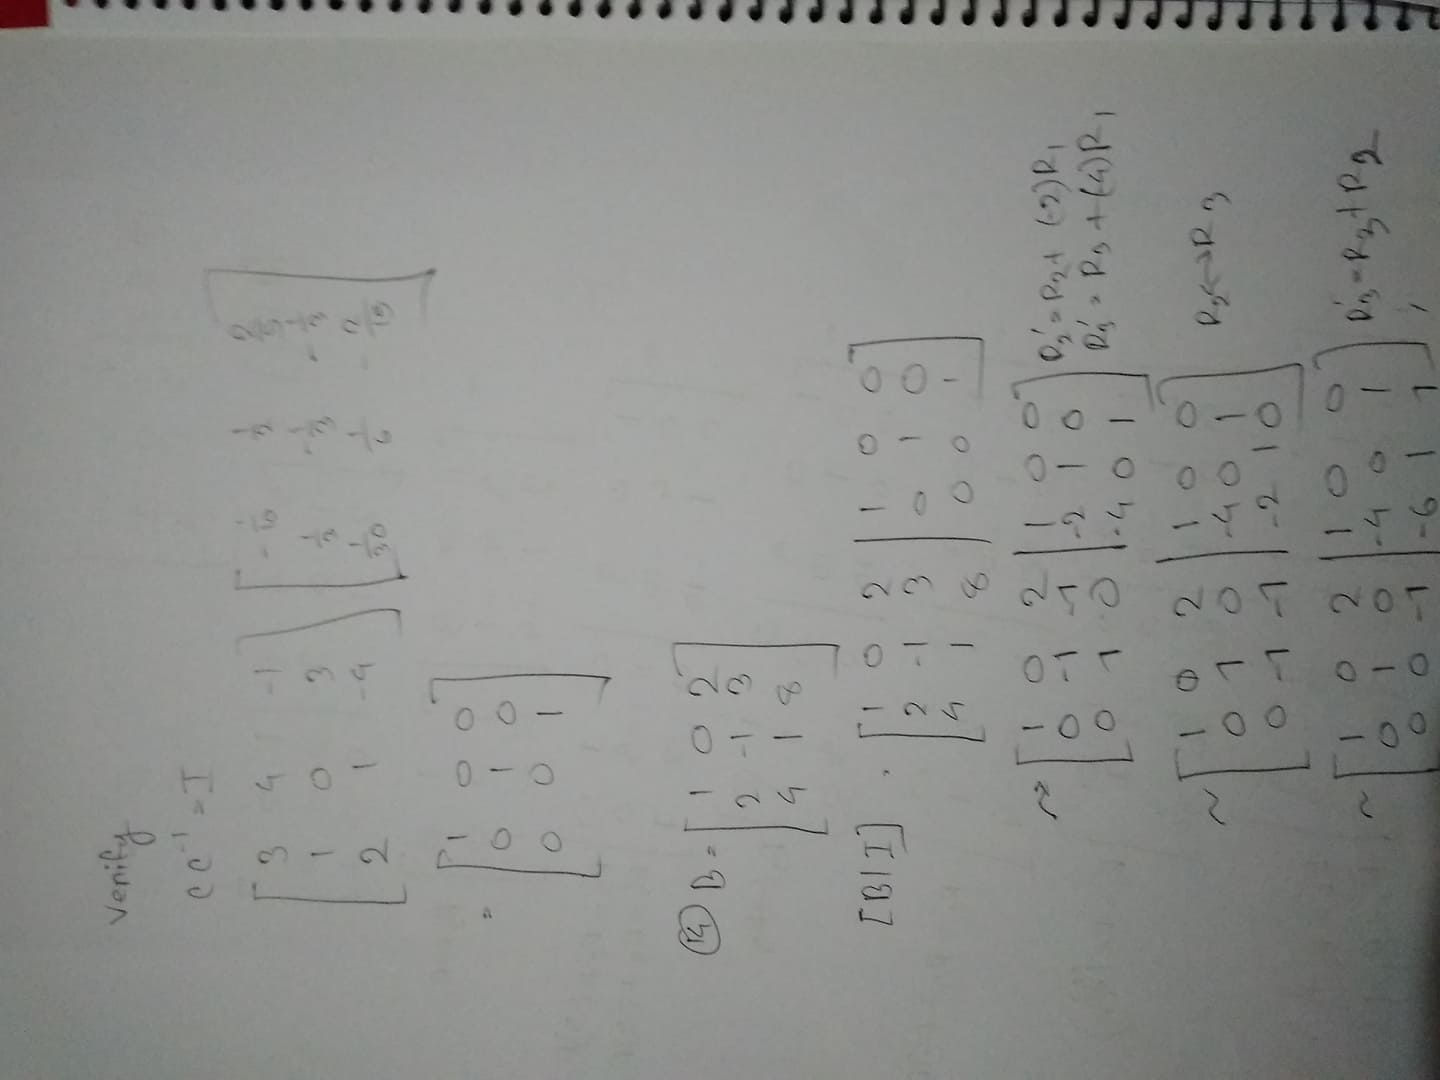 Verify
CC⁻¹ = I
[ 3 4 -1
1 0 3
2 1 -4 ]
= [ 1 0 0
0 1 0
0 0 1 ]
(14) B = [ 1 0 2
2 -1 3
4 1 8 ]
[B|I] . [ 1 0 2 | 1 0 0
2 -1 3 | 0 1 0
4 1 8 | 0 0 1 ]
~ [ 1 0 2 | 1 0 0
0 -1 -1 | -2 1 0
0 1 0 | -4 0 1 ] R₂' = R₂ + (-2)R₁
R₃' = R₃ + (-4)R₁
~ [ 1 0 2 | 1 0 0
0 1 0 | -4 0 1
0 -1 -1 | -2 1 0 ] R₂ ↔ R₃
~ [ 1 0 2 | 1 0 0
0 1 0 | -4 0 1
0 0 -1 | -6 1 1 ] R₃' = R₃ + R₂